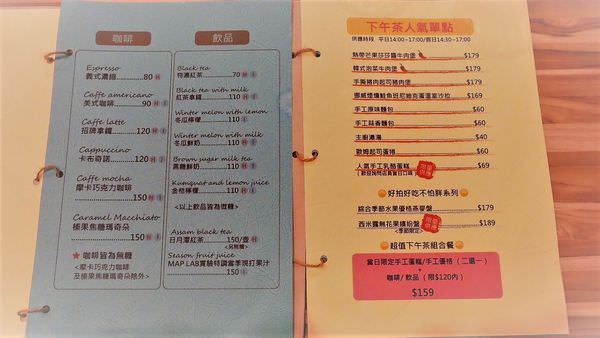 咖啡
Espresso
義式濃縮..............80 H
Caffe americano
美式咖啡..............90 H I
Caffe latte
招牌拿鐵............120 H I
Cappuccino
卡布奇諾............120 H
Caffe mocha
摩卡巧克力咖啡
150 H I
Caramel Macchiato
榛果焦糖瑪奇朵
150 H I
★ 咖啡皆為無糖
<摩卡巧克力咖啡
及榛果焦糖瑪奇朵除外>
飲品
Black tea
特濃紅茶..............70 H I
Black tea with milk
紅茶拿鐵............110 H I
Winter melon with lemon
冬瓜檸檬............110 I
Winter melon with milk
冬瓜鮮奶............110 H I
Brown sugar milk tea
黑糖鮮奶............110 H I
Kumquat and lemon juice
金桔檸檬............110 H I
<以上飲品皆為微糖>
Assam black tea
日月潭紅茶........150/壺 H
Season fruit juice
MAP LAB實驗特調當季現打果汁
150 I
下午茶人氣單點
供應時段 平日14:00~17:00/假日14:30~17:00
熱帶芒果莎莎醬牛肉堡 $179
韓式泡菜牛肉堡 $179
手撕豬肉起司豬肉堡 $179
挪威煙燻鮭魚班尼迪克蛋溫沙拉 $169
手工原味麵包 $60
手工蒜香麵包 $60
主廚濃湯 $40
歐姆起司薯條 $60
人氣手工乳酪蛋糕 $69
限量供應
好拍好吃不怕胖系列
綜合季節水果優格燕麥盤 $179
西米露無花果繽紛盤 $189
<季節限定>
限量供應
超值下午茶組合餐
當日限定手工蛋糕/手工優格（二選一）
+
咖啡/ 飲品（限$120內）
$159